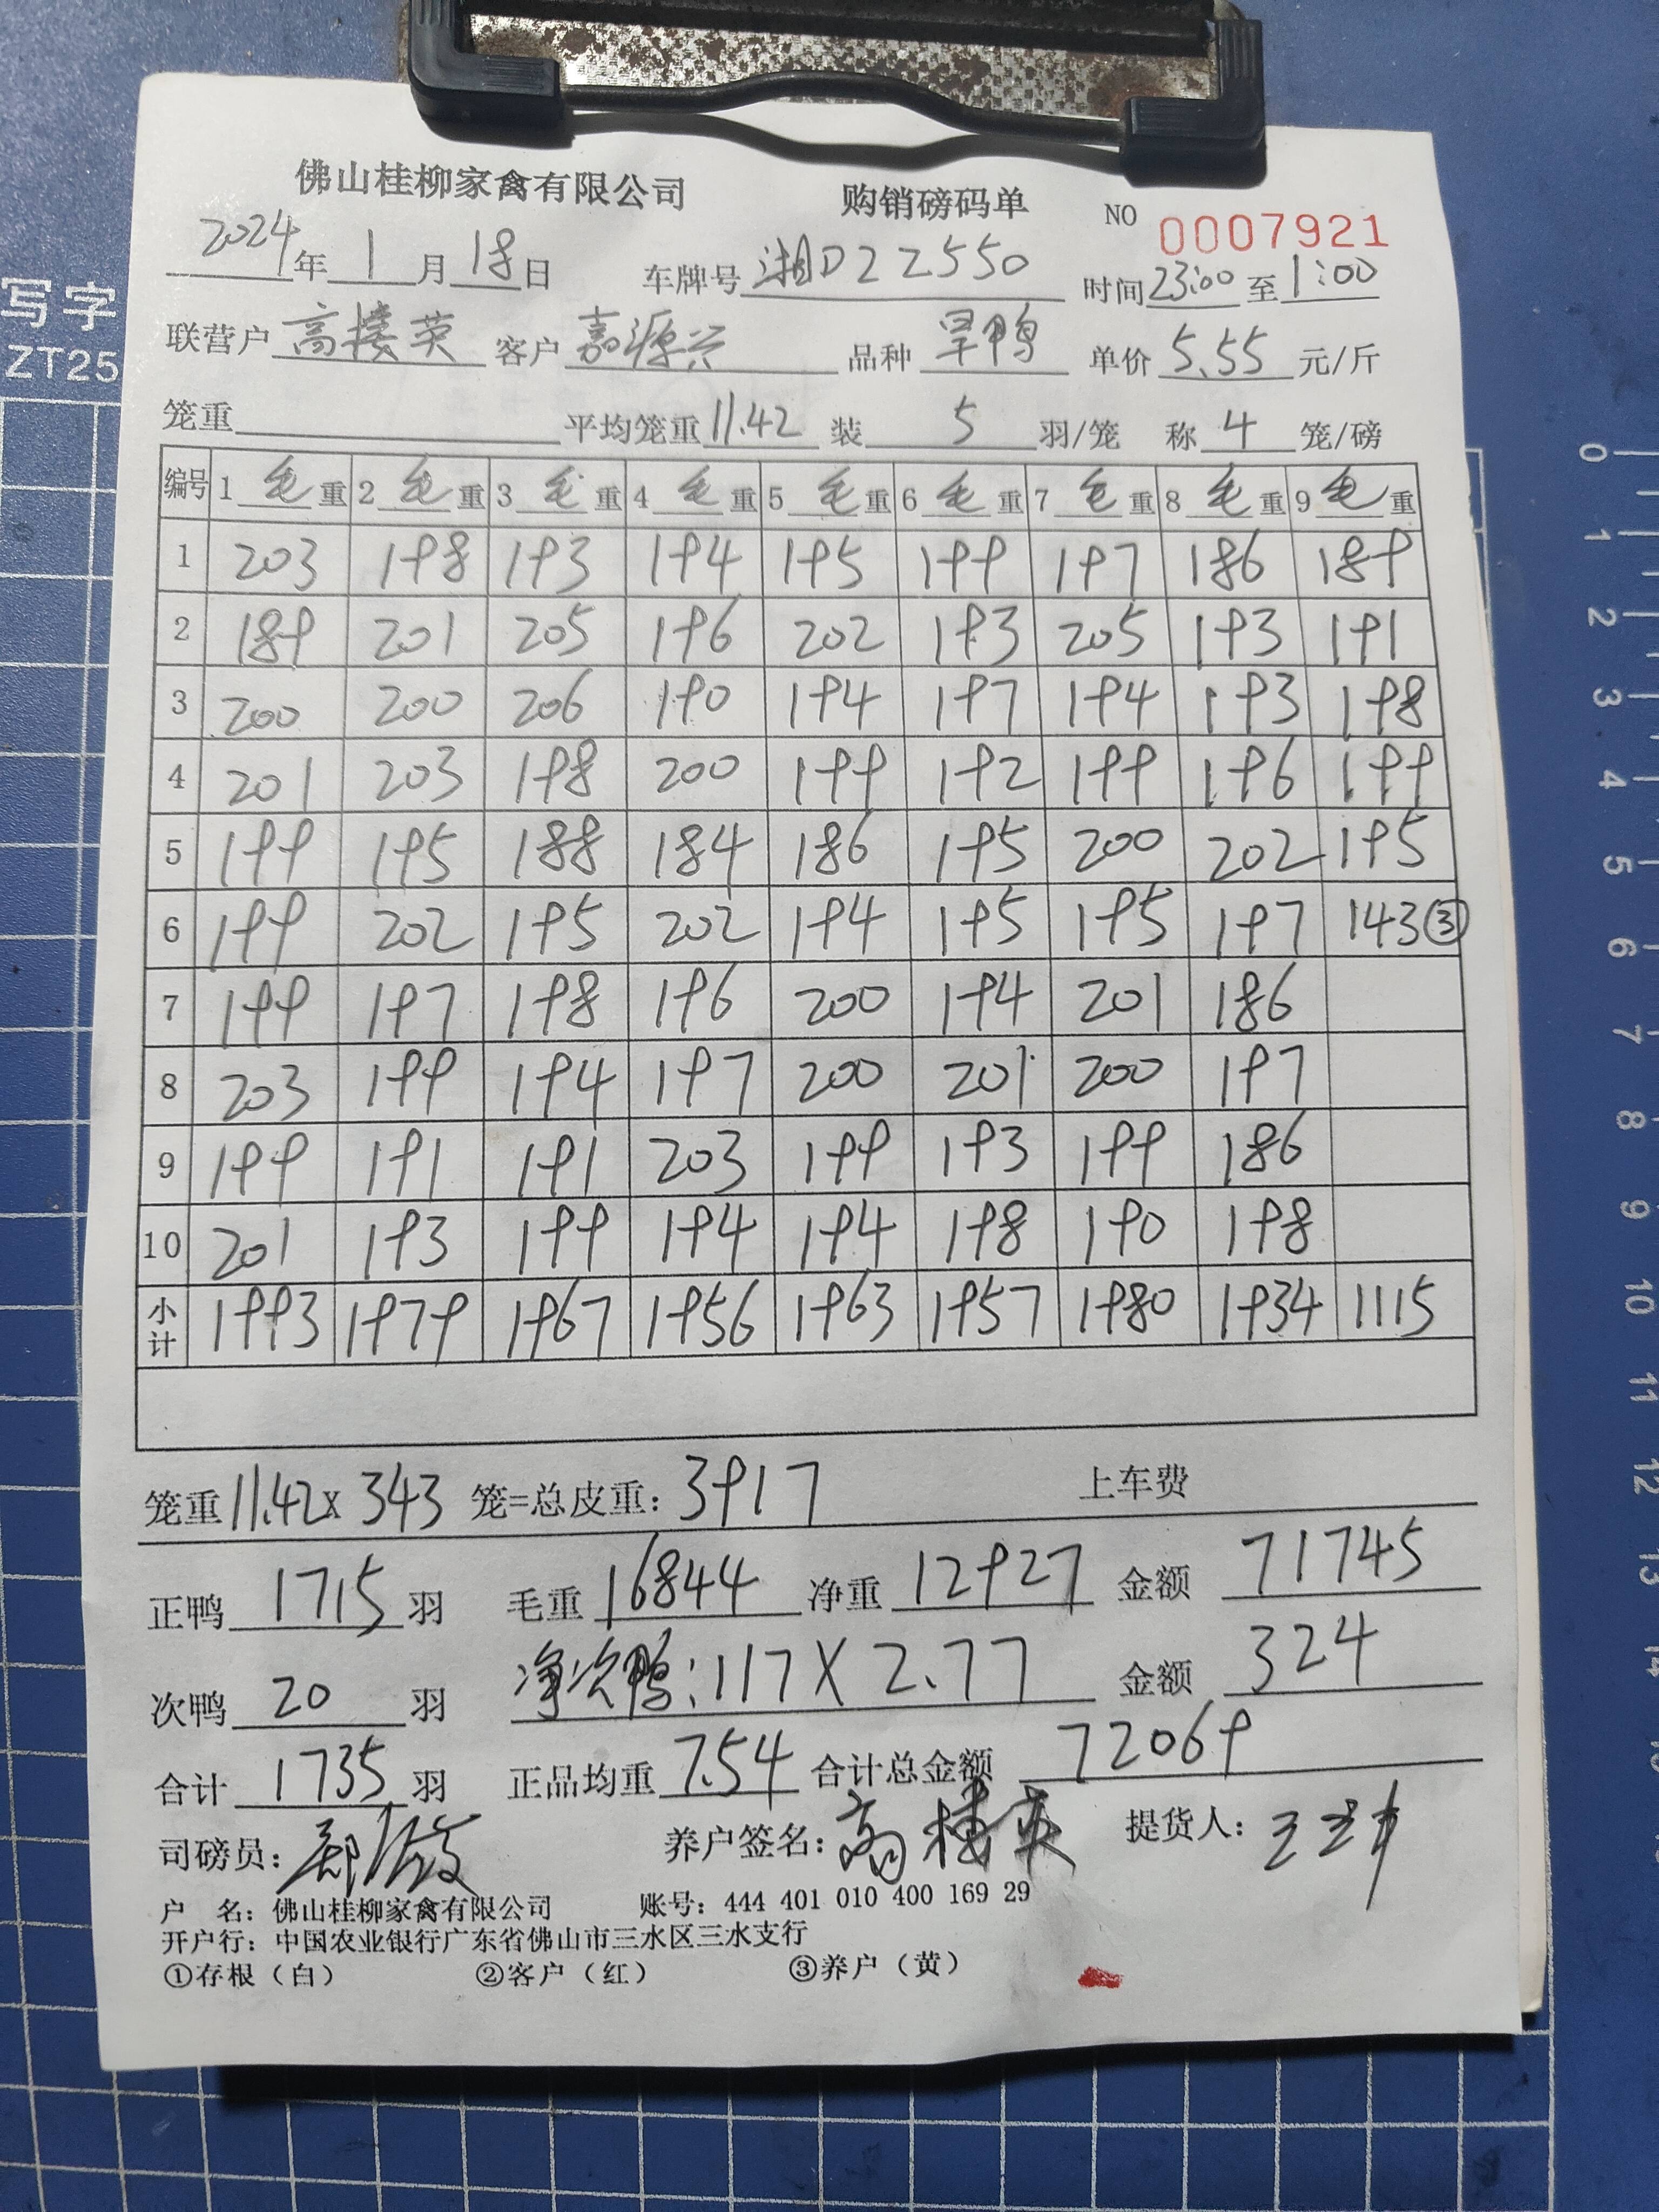 佛山桂柳家禽有限公司 购销磅码单 NO 0007921
2024年1月18日 车牌号湘D22550 时间23:00至1:00
联营户高接英 客户嘉源兴 品种旱鸭 单价5.55元/斤
笼重 平均笼重11.42 装5羽/笼 称4笼/磅
编号 1毛重 2毛重 3毛重 4毛重 5毛重 6毛重 7毛重 8毛重 9毛重
1 203 198 193 194 195 199 197 186 189
2 189 201 205 196 202 193 205 193 191
3 200 200 206 190 194 197 194 193 198
4 201 203 198 200 199 192 199 196 199
5 199 195 188 184 186 195 200 202 195
6 199 202 195 202 194 195 195 197 143③
7 199 197 198 196 200 194 201 186
8 203 199 194 197 200 201 200 197
9 199 191 191 203 199 193 199 186
10 201 193 199 194 194 198 190 198
小计 1993 1979 1967 1956 1963 1957 1980 1934 1115
笼重11.42X343 笼=总皮重:3917 上车费
正鸭1715羽 毛重16844 净重12927 金额71745
次鸭20羽 净次鸭:117X2.77 金额324
合计1735羽 正品均重7.54 合计总金额72069
司磅员: 养户签名:高 英 提货人:
户 名:佛山桂柳家禽有限公司 账号:444 401 010 400 169 29
开户行:中国农业银行广东省佛山市三水区三水支行
①存根(白) ②客户(红) ③养户(黄)
写字
ZT25
0
1
2
3
4
5
6
7
8
9
10
11
12
13
14